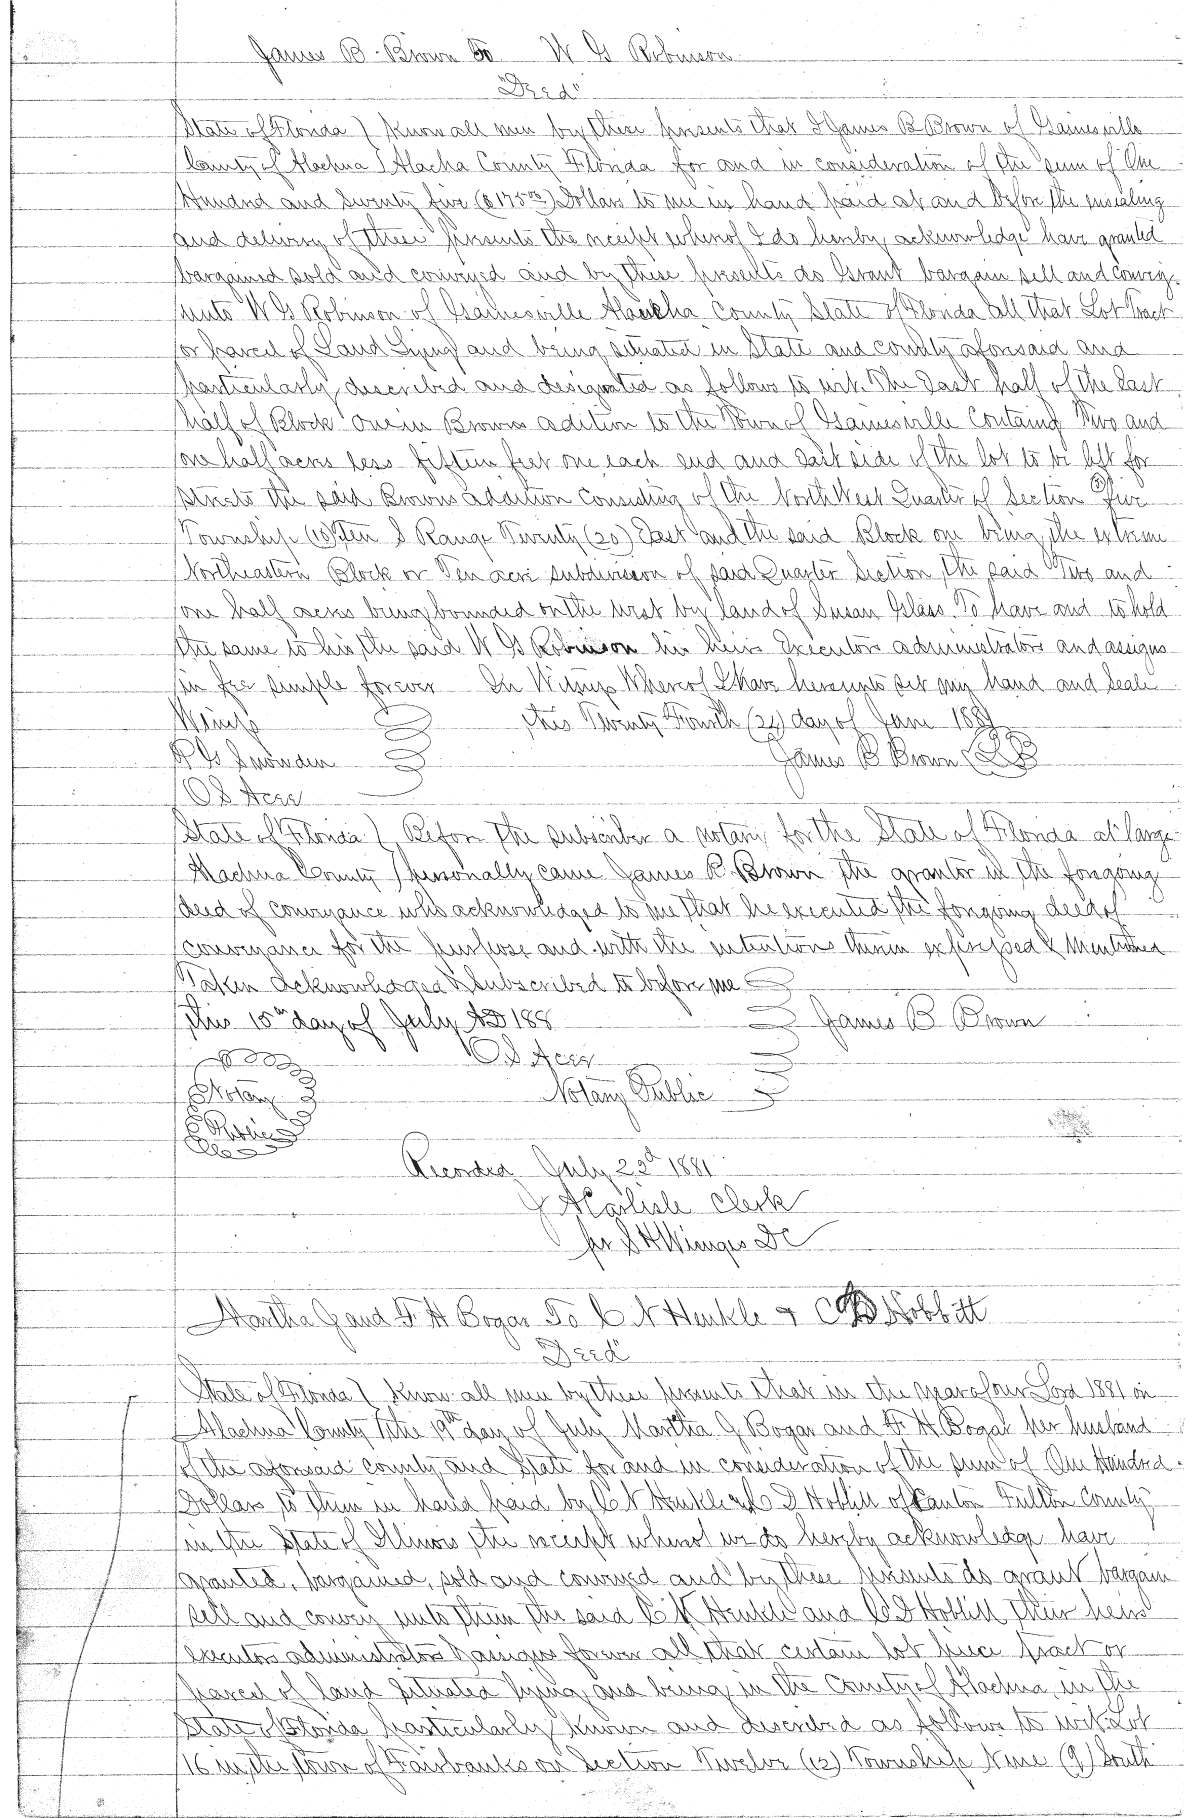 James B Brown To W G Robinson
"Deed"
State of Florida ) Know all men by these presents that I James B Brown of Gainesville
County of Alachua ) Alacha County Florida for and in consideration of the sum of One
Hundred and Seventy five ($175 00) Dollars to me in hand paid at and before the ensealing
and delivery of these presents the receipt whereof I do hereby acknowledge have granted
bargained sold and conveyed and by these presents do Grant bargain sell and convey
unto W G Robinson of Gainesville Alachua County State of Florida all that Lot Tract
or parcel of Land Lying and being situated in State and county aforesaid and
particularly described and designated as follows to wit. The East half of the East
half of Block one in Browns adition to the Town of Gainesville Containg Two and
one half acres less fifteen feet one each end and East side of the lot to be left for
streets the said Browns addition Consisting of the North West Quarter of Section (5) five
Township (10) Ten S Range Twenty (20) East and the said Block one being the extreme
Northeastern Block or Ten acre subdivision of said Quarter Section, the said Two and
one half acres being bounded on the west by land of Susan Glass. To have and to hold
the same to him the said W G Robinson his heirs Executors administrators and assigns
in fee simple forever In Witness Whereof I have hereunto set my hand and Seale
Witness this Twenty Fourth (24) day of June 1881
P G Snowden James B Brown
O S Acee
State of Florida ) Before the subscriber a notary for the State of Florida at large
Alachua County ) personally came James B Brown the grantor in the foregoing
deed of conveyance who acknowledged to me that he executed the foregoing deed of
conveyance for the purpose and with the intentions therein expressed & mentioned
Taken acknowledged & subscribed to before me
this 15th day of July AD 188 James B Brown
O S Acee
Notary Notary Public
Public
Recorded July 22d 1881
J A Carlisle Clerk
per S H Wienges DC
Martha J and F H Bogar To C N Henkle & C D Hobbitt
"Deed"
State of Florida ) Know all men by these presents that in the year of our Lord 1881 on
Alachua County ) the 19th day of July Martha J Bogar and F H Bogar her husband
of the aforesaid county and State for and in consideration of the sum of One Hundred
Dollars to them in hand paid by C N Henkle & C D Hobbitt of Canton Fulton County
in the State of Illinois, the receipt whereof we do hereby acknowledge have
granted, bargained, sold and conveyed and by these presents do grant bargain
sell and convey unto them the said C N Henkle and C D Hobbitt their heirs
executors administrators & assigns forever all that certain lot piece tract or
parcel of land Situated lying and being in the County of Alachua, in the
State of Florida particularly known and described as follows to wit: Lot
16 in the town of Fairbanks on Section Twelve (12) Township Nine (9) South